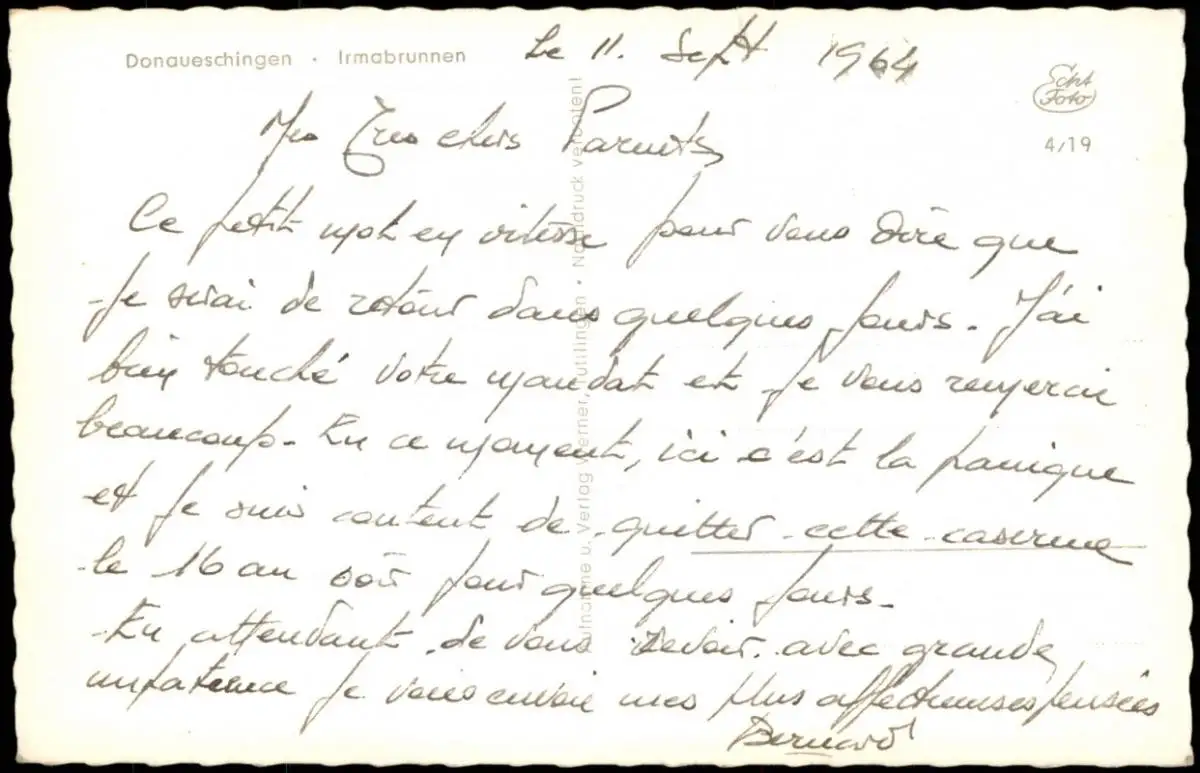 Donaueschingen · Irmabrunnen
Le 11. Sept 1964
Echt
Foto
4/19
Mes Très chers Parents,
Ce petit mot en vitesse pour vous dire que
je serai de retour dans quelques jours. J'ai
bien touché votre mandat et je vous remercie
beaucoup. En ce moment, ici c'est la panique
et je suis content de quitter cette caserne
le 16 au soir pour quelques jours.
En attendant de vous revoir avec grande
impatience je vous envoie mes plus affectueuses pensées
Bernard
Aufnahme u. Verlag Werner, Tuttlingen · Nachdruck verboten!